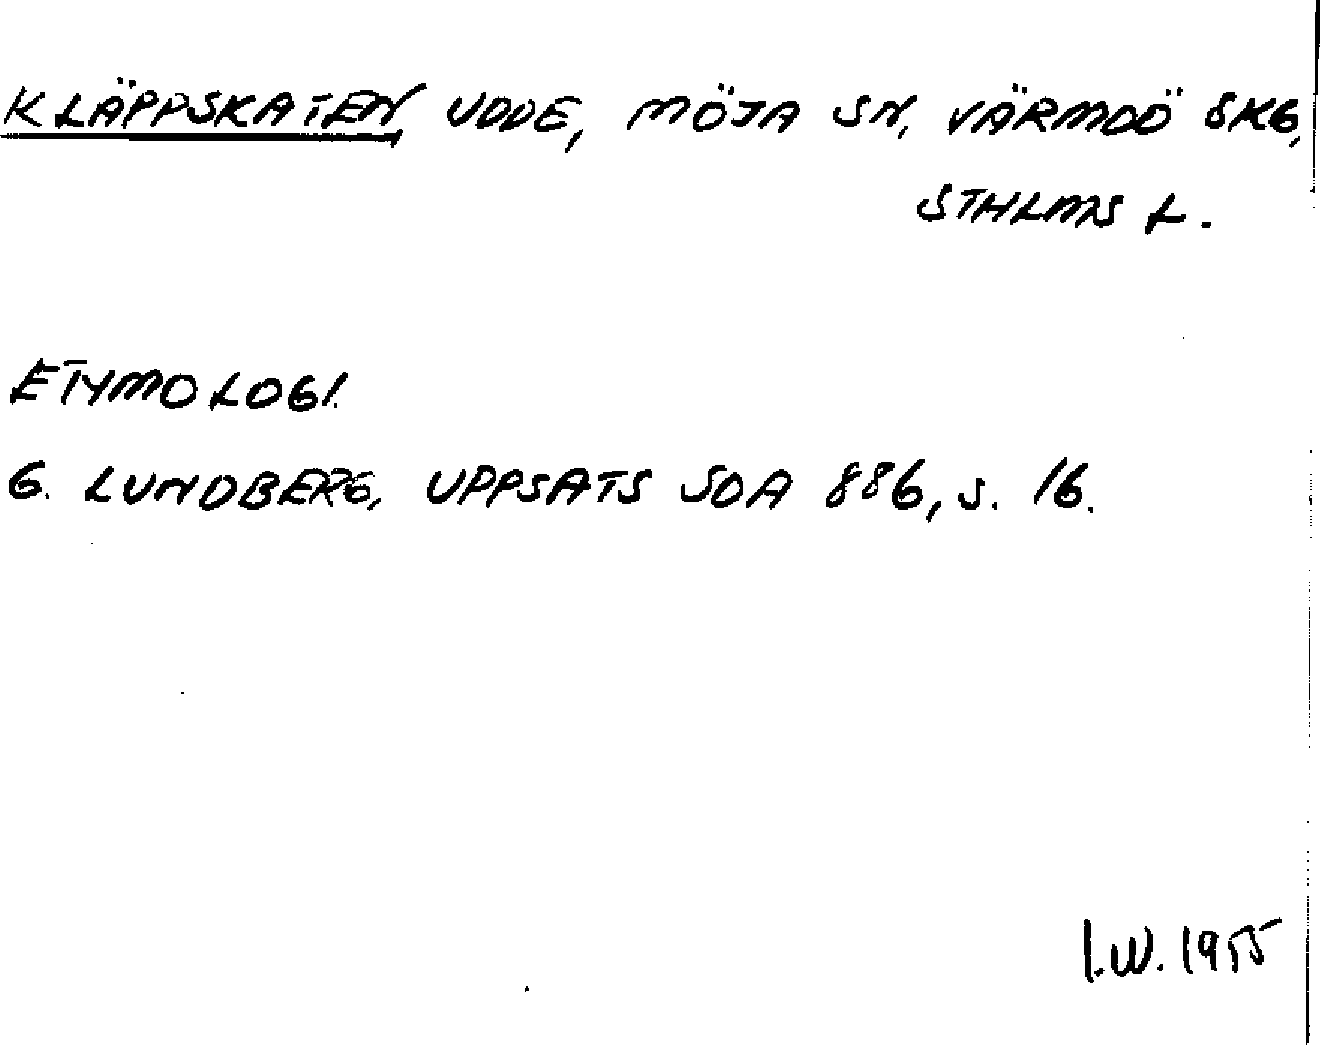 KLÄPPSKATEN, UDDE, MÖJA SN, VÄRMDÖ SKG,
STHLMS L.
ETYMOLOGI.
G. LUNDBERG, UPPSATS SOA 886, S. 16.
I.W. 1955